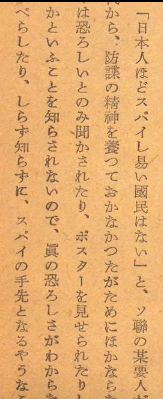 「日本人ほどスパイし易い國民はない」と、ソ聯の某要人が
から、防諜の精神を養つておかなかつたがためにほかならな
は恐ろしいとのみ聞かされたり、ポスターを見せられたりし
かといふことを知らされないので、眞の恐ろしさがわからな
べらしたり、しらず知らずに、スパイの手先となるやうなこ